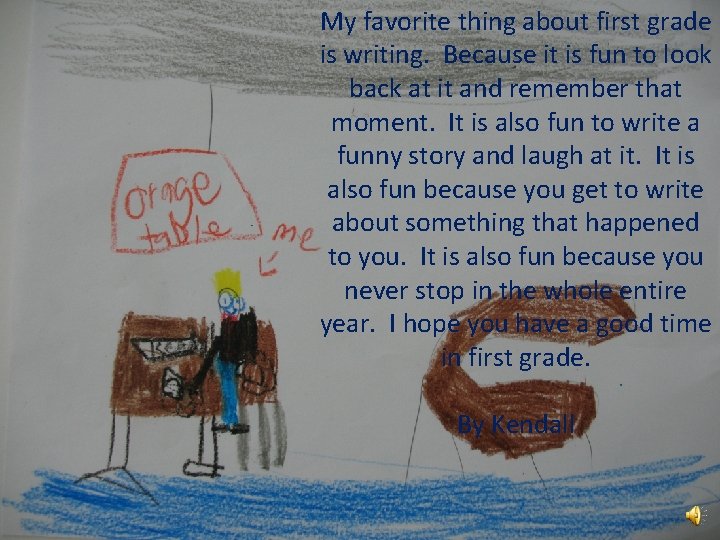 My favorite thing about first grade
is writing.  Because it is fun to look
back at it and remember that
moment.  It is also fun to write a
funny story and laugh at it.  It is
also fun because you get to write
about something that happened
to you.  It is also fun because you
never stop in the whole entire
year.  I hope you have a good time
in first grade.
By Kendall
orange
table
me